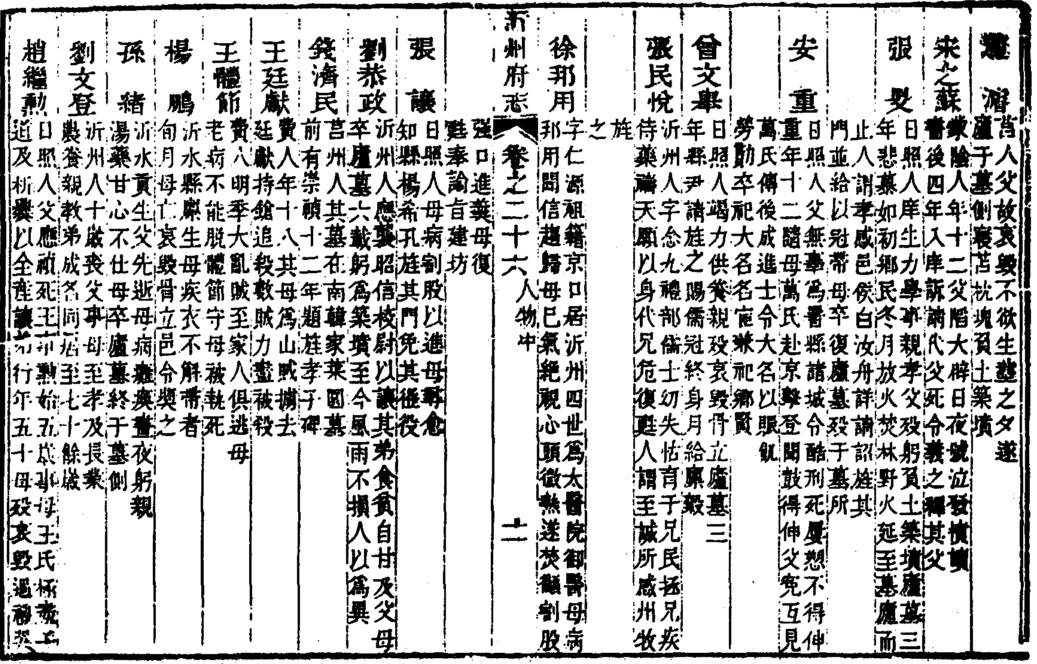 莒人父故哀毀不欲生葬之夕遂
廬于墓側寢苫枕塊負土築墳
宋之蘇
蒙陰人年十二父陷大辟日夜號泣發憤讀
書後四年入庠訴請代父死令義之釋其父
張旻
日照人庠生力學事親孝父歿躬負土築墳廬墓三
年悲慕如初鄉民冬月放火焚林野火延至墓廬而
止人謂孝感邑侯白汝舟詳請詔旌其
門並給以冠帶母卒復廬墓歿于墓所
安重
日照人父無辜爲署縣諸城令酷刑死屢愬不得伸
重年十二隨母萬氏赴京擊登聞鼓得伸父寃互見
萬氏傳後成進士令大名以賑飢
勞勩卒祀大名名宦兼祀鄉賢
曾文舉
日照人竭力供養親歿哀毀骨立廬墓三
年縣尹請旌之賜儒冠終身月給廩穀
張民悅
沂州人字念九禮部儒士幼失怙育于兄民拯兄疾
侍藥禱天願以身代兄危復甦人謂至誠所感州牧
旌
之
徐邦用
字仁源祖籍京口居沂州四世爲太醫院御醫母病
邦用聞信趨歸母已氣絕視心頭微熱遂焚顙割股
沂州府志
卷之二十六
人物中
十一
強口進羹母復
甦奉諭旨建坊
張讓
日照人母病割股以進母尋愈
知縣楊希孔旌其門免其徭役
劉恭政
沂州人應襲昭信校尉以讓其弟食貧自甘及父母
卒廬墓六載躬爲築墳至今風雨不損人以爲異
錢濟民
莒州人其墓在南韓家菜園墓
前有崇禎十二年題旌孝子碑
王廷獻
費人年十八其母爲山賊擄去
廷獻持鎗追殺數賊力盡被殺
王體節
費人明季大亂賊至家人俱逃母
老病不能脫體節守母被執死
楊鵬
沂水縣廩生母疾衣不解帶者
旬月母亡哀毀骨立邑令獎之
孫緒
沂水貢生父先逝母病癱瘓晝夜躬親
湯藥甘心不仕母卒廬墓終于墓側
劉文登
沂州人十歲喪父事母至孝及長業
農養親教弟成名同居至七十餘歲
趙繼勲
日照人父應禎死王事勲始五歲事母王氏極孝
道及析爨以全產讓弟行年五十母歿哀毀過禮